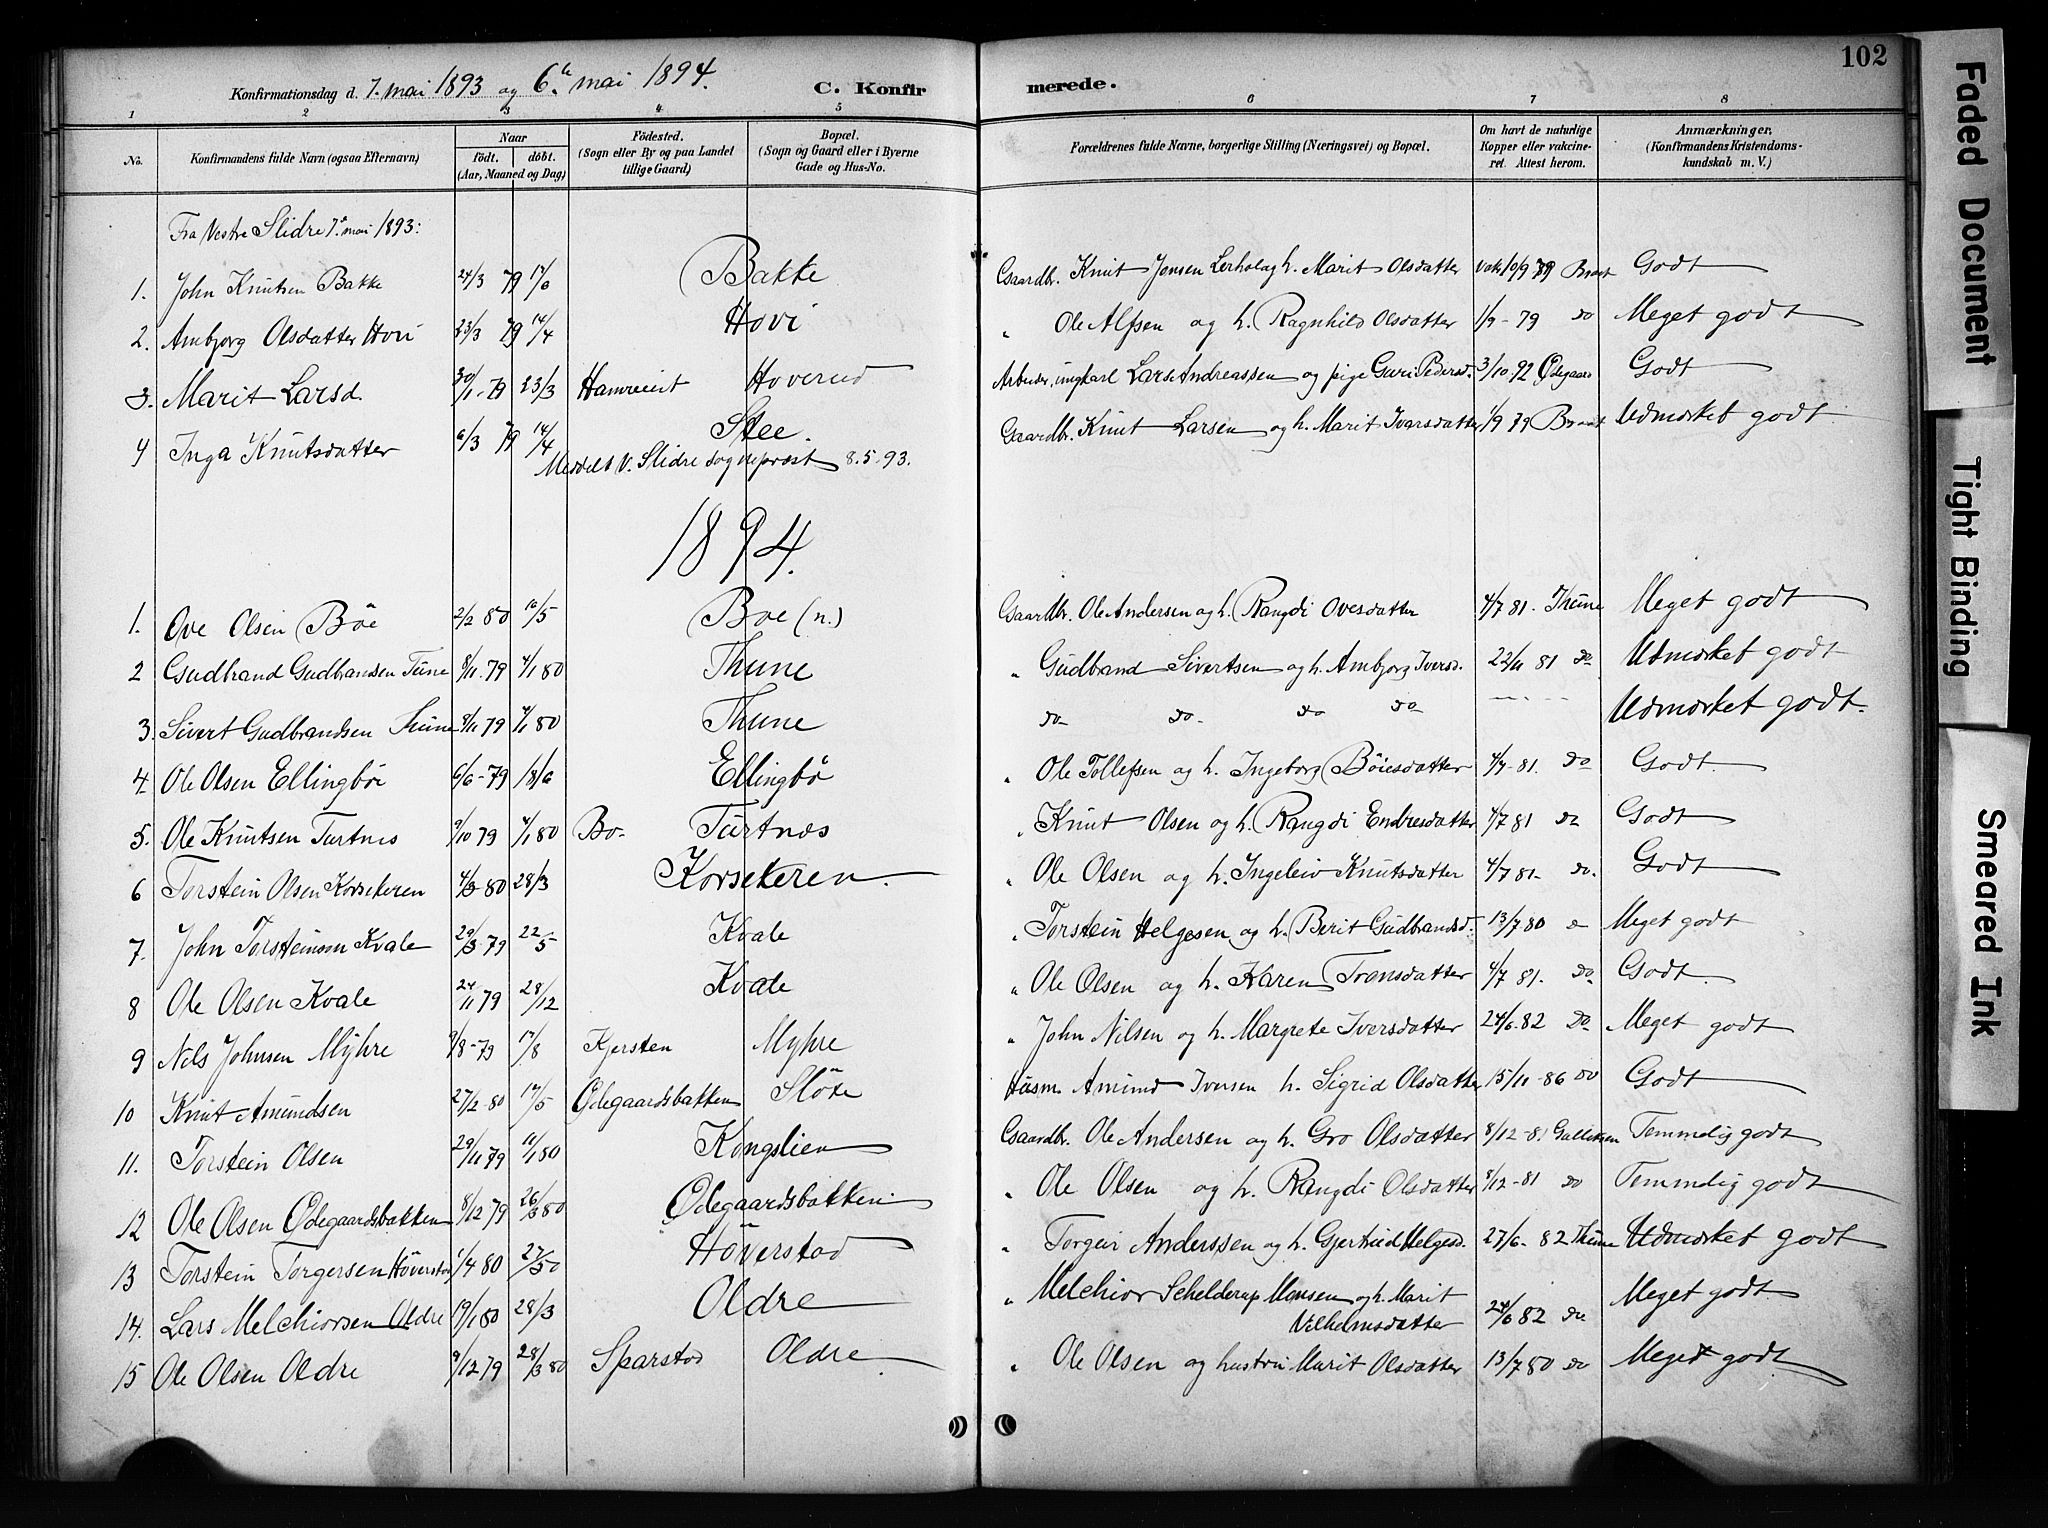 102
Konfirmationsdag d. 7. mai 1893 og 6te mai 1894. C. Konfirmerede.
1 2 3 4 5 6 7 8
No. Konfirmandens fulde Navn (ogsaa Efternavn) Naar födt. döbt. (Aar, Maaned og Dag) Födested. (Sogn eller By og paa Landet tillige Gaard) Bopæl. (Sogn og Gaard eller i Byerne Gade og Hus-No. Forældrenes fulde Navne, borgerlige Stilling (Næringsvei) og Bopæl. Om havt de naturlige Kopper eller vakcineret. Attest herom. Anmærkninger. (Konfirmandens Kristendomskundskab m. V.)
Fra Vestre Slidre 7de mai 1893:
1. John Knutsen Bakke 24/3 79 17/6 Bakke Gaardbr. Knut Jonsen Lerhol og h. Marit Olsdatter vak 10/9 79 Godt
2. Ambjorg Olsdatter Hovi 23/3 79 14/4 Hovi " Ole Alfsen og h. Ragnhild Olsdatter 1/9-79 do Meget godt
3. Marit Larsd. 30/1-79 23/3 Hoverud ungkarl Lars Andreassen og pige Guri Pedersd. 3/10.92 Ødegaard Godt
4 Inga Knutsdatter 6/3 79 14/4 Stee. Gaardbr. Knut Larsen og h. Marit Ivarsdatter 1/9 79 Udmærket godt
Meddelt V. Slidre sogneprest 8.5.93.
1894.
1. Ove Olsen Böe 2/2 80 16/5 Boe (n.) Gaardbr. Ole Andersen og h. Rangdi Ovesdatter 4/7 81. Thune Meget godt
2 Gudbrand Gudbrandsen Tune 8/11.79 4/1 80 Thune " Gudbrand Sivertsen og h. Ambjorg Iversd. 22/11 81 do Udmærket godt
3. Sivert Gudbrandsen Thune 8/11 79 4/1 80 Thune do do do do Udmærket godt.
4. Ole Olsen Ellingböe 6/6-79 18/6 Ellingbö " Ole Tollefsen og h. Ingeborg Böiesdatter 4/7-81. do Godt
5. Ole Knutsen Turtnes 9/10 79 4/1 80 Bo- Turtnes " Knut Olsen og h. Rangdi Endresdatter 4/7 81 do Godt
6 Torstein Olsen Korsekeren 4/3-80 28/3 Korsekeren " Ole Olsen og h. Ingeleiv Knutsdatter 4/7 81- do. Godt
7. John Torsteinson Kvale 29/3-79 22/5 Kvale " Torstein Helgesen og h. Berit Gudbrandsd. 13/7 80 do Meget godt
8 Ole Olsen Kvale 24/11 79 28/12 Kvale " Ole Olsen og h. Karen Transdatter 4/7 81. do Godt
9 Nils Johnsen Myhre 9/8-79 17/8 Kjersten Myhre " John Nilsen og h. Margrete Iversdatter 24/6.82 do Meget godt
10 Knut Amundsen 27/2.80 17/5 Ødegaardsbakken Slöte Husm. Amund Iversen h. Sigrid Olsdatter 15/11-86 do Godt
11. Torstein Olsen 29/11 79 11/1 80 Kongslien Gaardbr. Ole Andersen og h. Gro Olsdatter 8/12-81 Temmelig godt
12 Ole Olsen Ødegaardsbakken 8/12 79 26/3 80 Ødegaardsbakken " Ole Olsen og h. Rangdi Olsdatter 8/12-81 do Temmelig godt
13 Torstein Torgersen Höverstad 1/4 80 27/5 Höverstad " Torgeir Anderssen og h. Gjertrud Helgesd. 27/6-82 Thune Udmærket godt
14. Lars Melchiorsen Oldre 19/1 80 28/3 Oldre " Melchior Schelderup Monsen og h. Marit
Vilhelmsdatter 24/6 82 do Meget godt
15 Ole Olsen Oldre 9/12 79 28/3 80 Sparstad Oldre. " Ole Olsen og hustru Marit Olsdatter 13/7 80 do Meget godt
Faded Document
Tight Binding
Smeared Ink